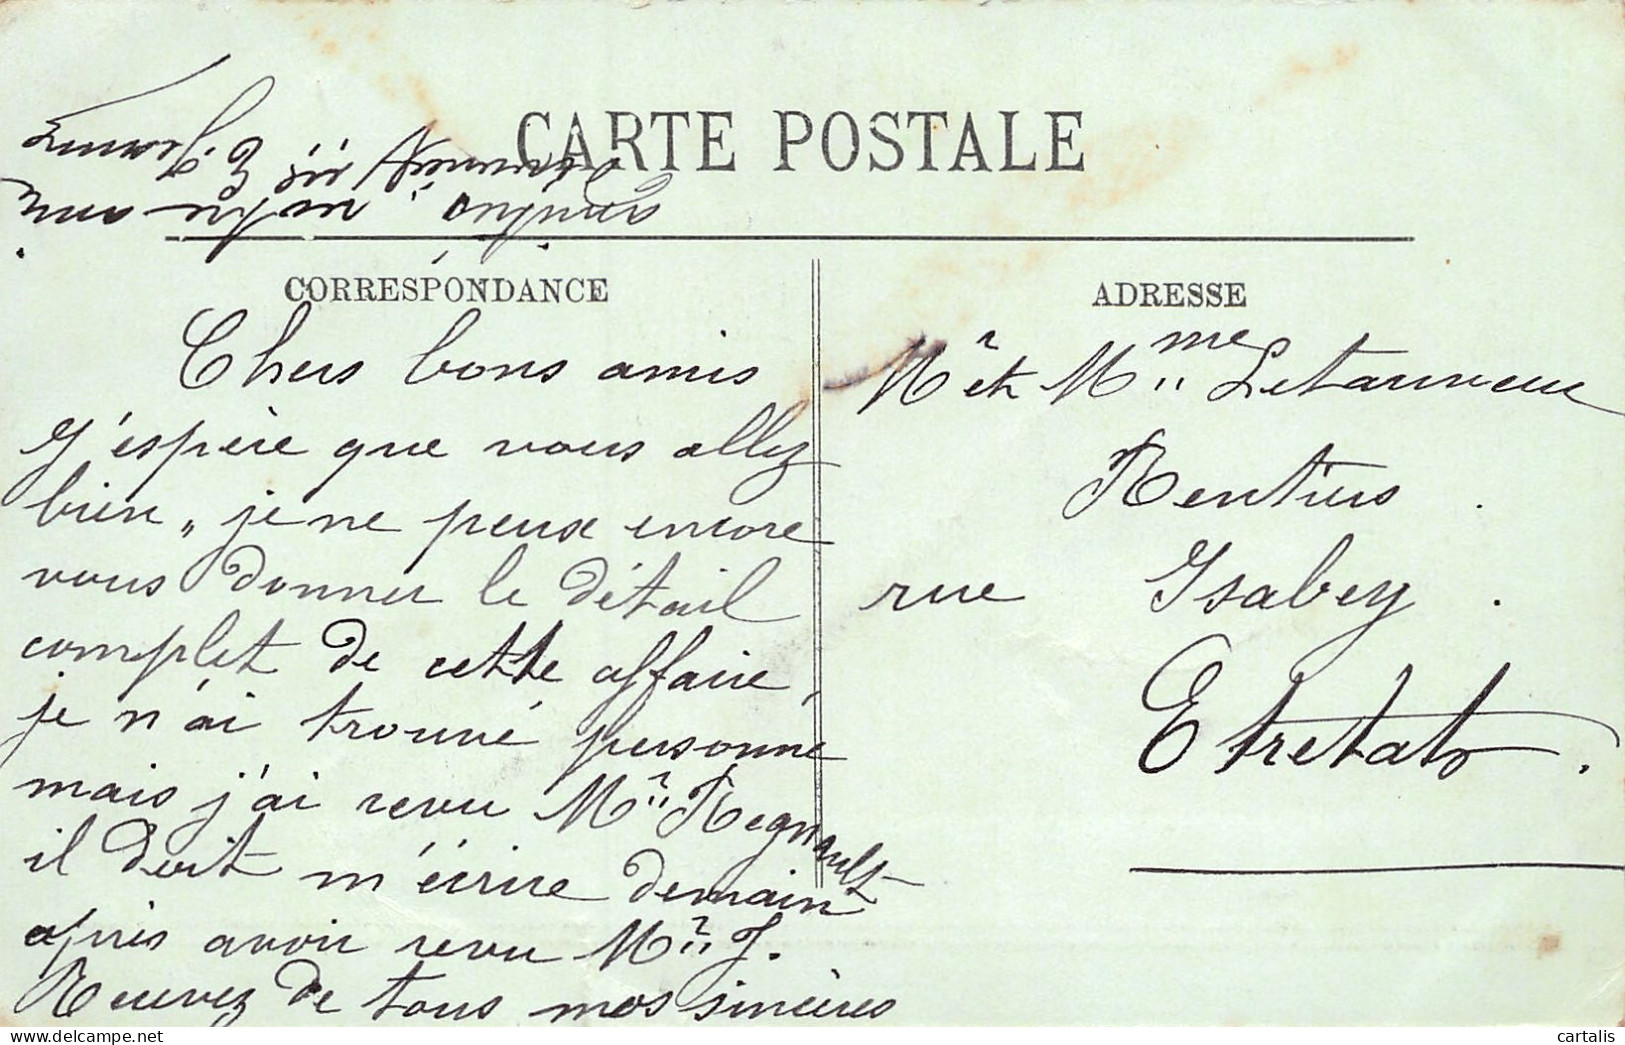 CARTE POSTALE
CORRESPONDANCE
Chers bons amis
J'espère que vous allez
bien,, je ne peux encore
vous donner le détail
complet de cette affaire,
je n'ai trouvé personne
mais j'ai revu Mr Regnault
il doit m'écrire demain
après avoir revu Mr J.
Recevez de tous nos sincères
ADRESSE
Mr et Mme
Rentiers.
rue Isabey.
Etretat.
cartalis